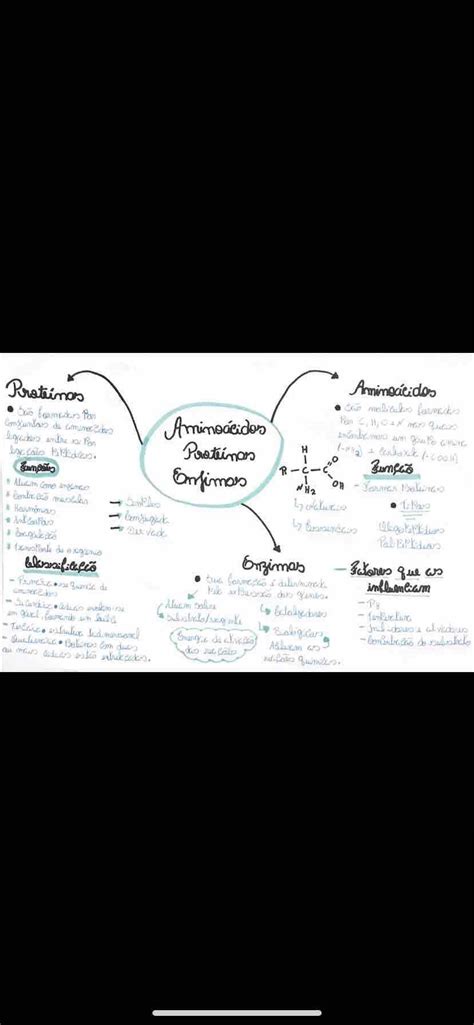 Proteínas
• São formadas por
conjuntos de aminoácidos
ligados entre si por
ligações peptídicas.
Funções
Atuam como enzimas
Contração muscular
Hormônios
Anticorpos
Coagulação
transporte de oxigênio
→ Simples
→ Conjugada
→ Derivada
Classificação
- Primária • sequência de
aminoácidos
- Secundária •
em geral, formando um
- Terciária • estrutura tridimensional
- Quaternária • Proteínas com duas
ou mais cadeias estão entrelaçadas.
Aminoácidos
Proteínas
Enzimas
Aminoácidos
• São moléculas formadas
por C, H, O e N nas quais
encontramos um grupo amina
(-NH2) e carboxila (-COOH)
H
R - C - C
O
OH
NH2
↳ naturais
↳ essenciais
Função
- Formar Proteínas
• Tipos
Oligopeptídeos
Polipeptídeos
Enzimas
• Sua formação é determinada
pela expressão dos genes.
Atuam sobre
substrato/reagente
Energia de ativação
das reações
↳ catalizadores
Biológicos
Aceleram as
reações químicas.
- Fatores que as
influenciam
- PH
- Temperatura
- Inibidores e ativadores
- Concentração do substrato